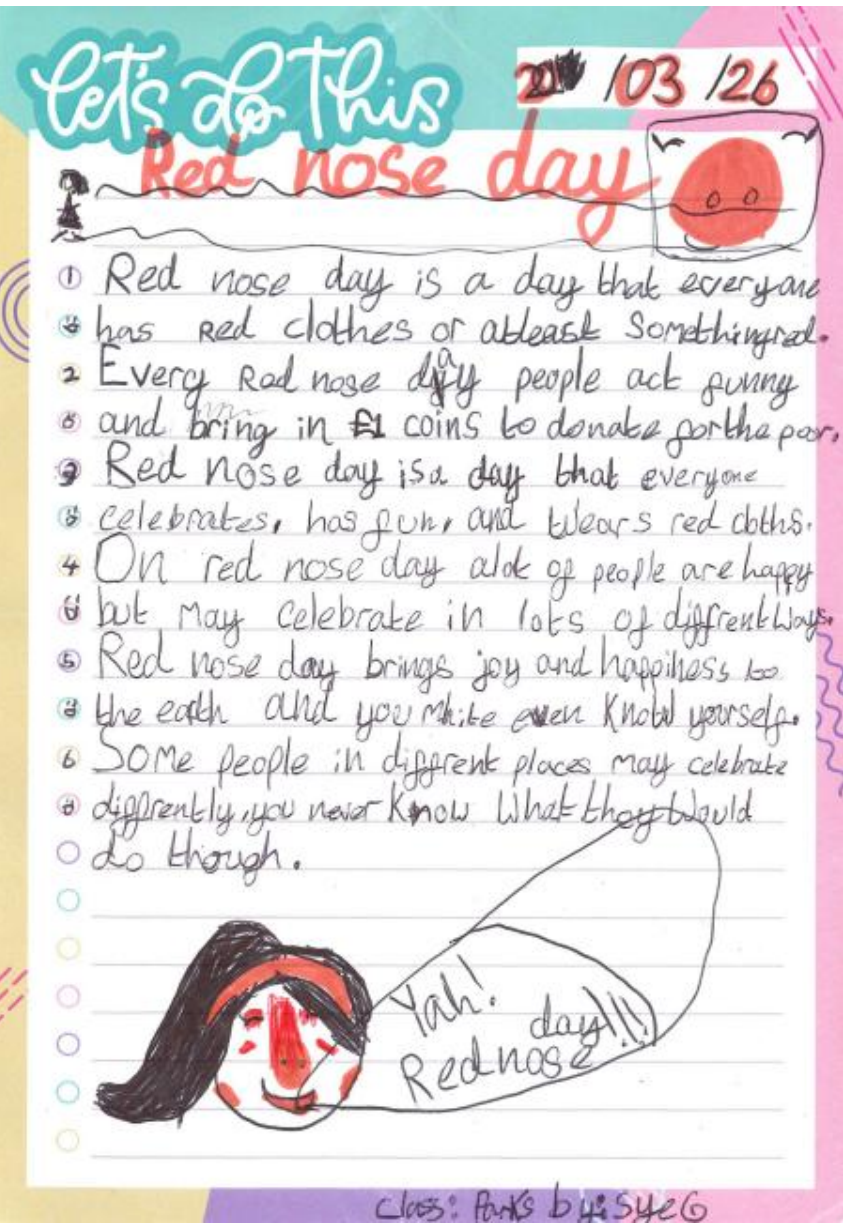 let's do this
/03/26
Red nose day
1 Red nose day is a day that everyone
has Red clothes or atleast Somethingred.
2 Every Red nose day people act funny
and bring in £1 coins to donate for the poor.
3 Red nose day is a day that everyone
celebrates, has fun, and wears red cloths.
4 On red nose day alot of people are happy
but may celebrate in lots of diffrent ways.
5 Red nose day brings joy and happiness to
the earth and you mhite even know yourself.
6 Some people in diffrent places may celebrate
diffrently, you never know what they would
do though.
Yah!
Red nose day!!!
Class: Parks by: